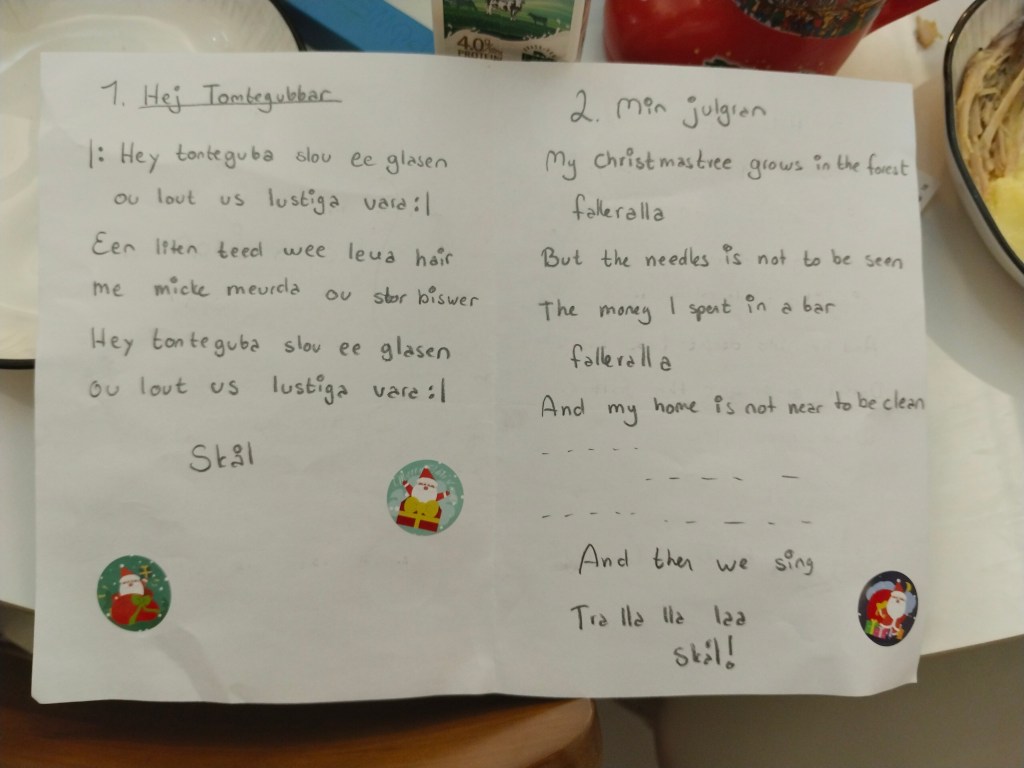 4.0%
PROTEIN
1. Hej Tomtegubbar
|: Hey tonteguba slou ee glasen
ou lout us lustiga vara :|
Een liten teed wee leva hair
me micke meurda ou stor biswer
Hey tonteguba slou ee glasen
ou lout us lustiga vara :|
Skål
2. Min julgran
My Christmastree grows in the forest
falleralla
But the needles is not to be seen
The money I spent in a bar
falleralla
And my home is not near to be clean
- - - - -
- - - - -
- - - - - - - - - -
And then we sing
Tra lla lla laa
Skål!